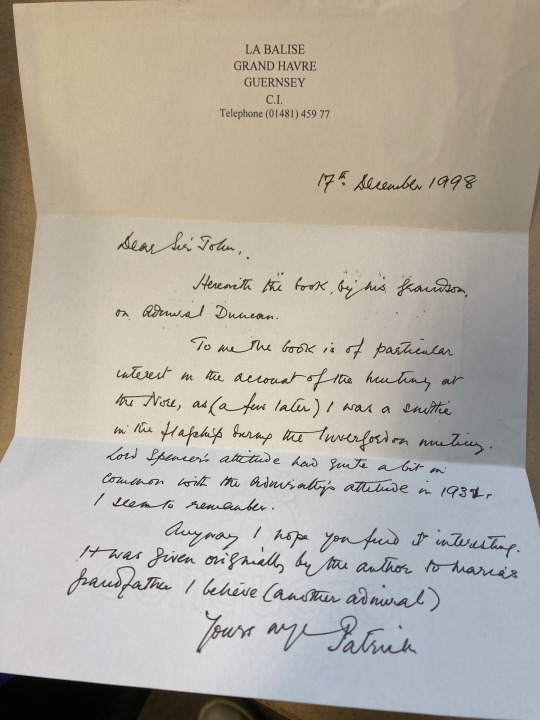 LA BALISE
GRAND HAVRE
GUERNSEY
C.I.
Telephone (01481) 459 77
17th December 1998
Dear Sir John,
Herewith the book, by his grandson,
on Admiral Duncan.
To me the book is of particular
interest in the account of the mutiny at
the Nore, as (a few later) I was a snottie
in the flagship during the Invergordon mutiny.
Lord Spencer's attitude had quite a bit in
common with the Admiralty's attitude in 1931,
I seem to remember.
Anyway I hope you find it interesting.
It was given originally by the author to Maria's
grandfather I believe (another admiral)
Yours
Patrick